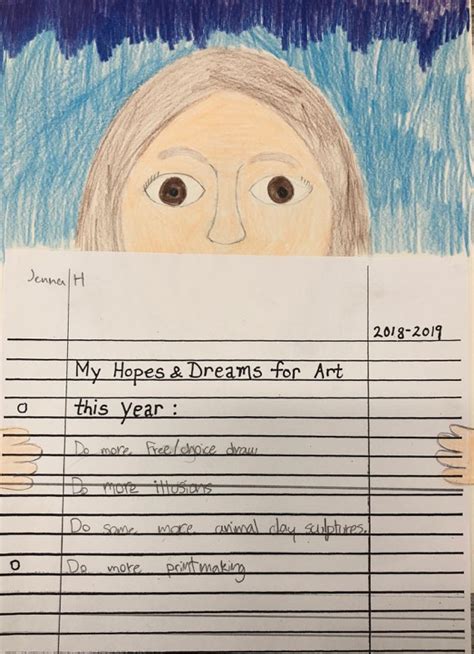 Jenna H
2018-2019
My Hopes & Dreams for Art
this year:
Do more free/choice draw
Do more illusions
Do some more animal clay sculptures.
Do more printmaking